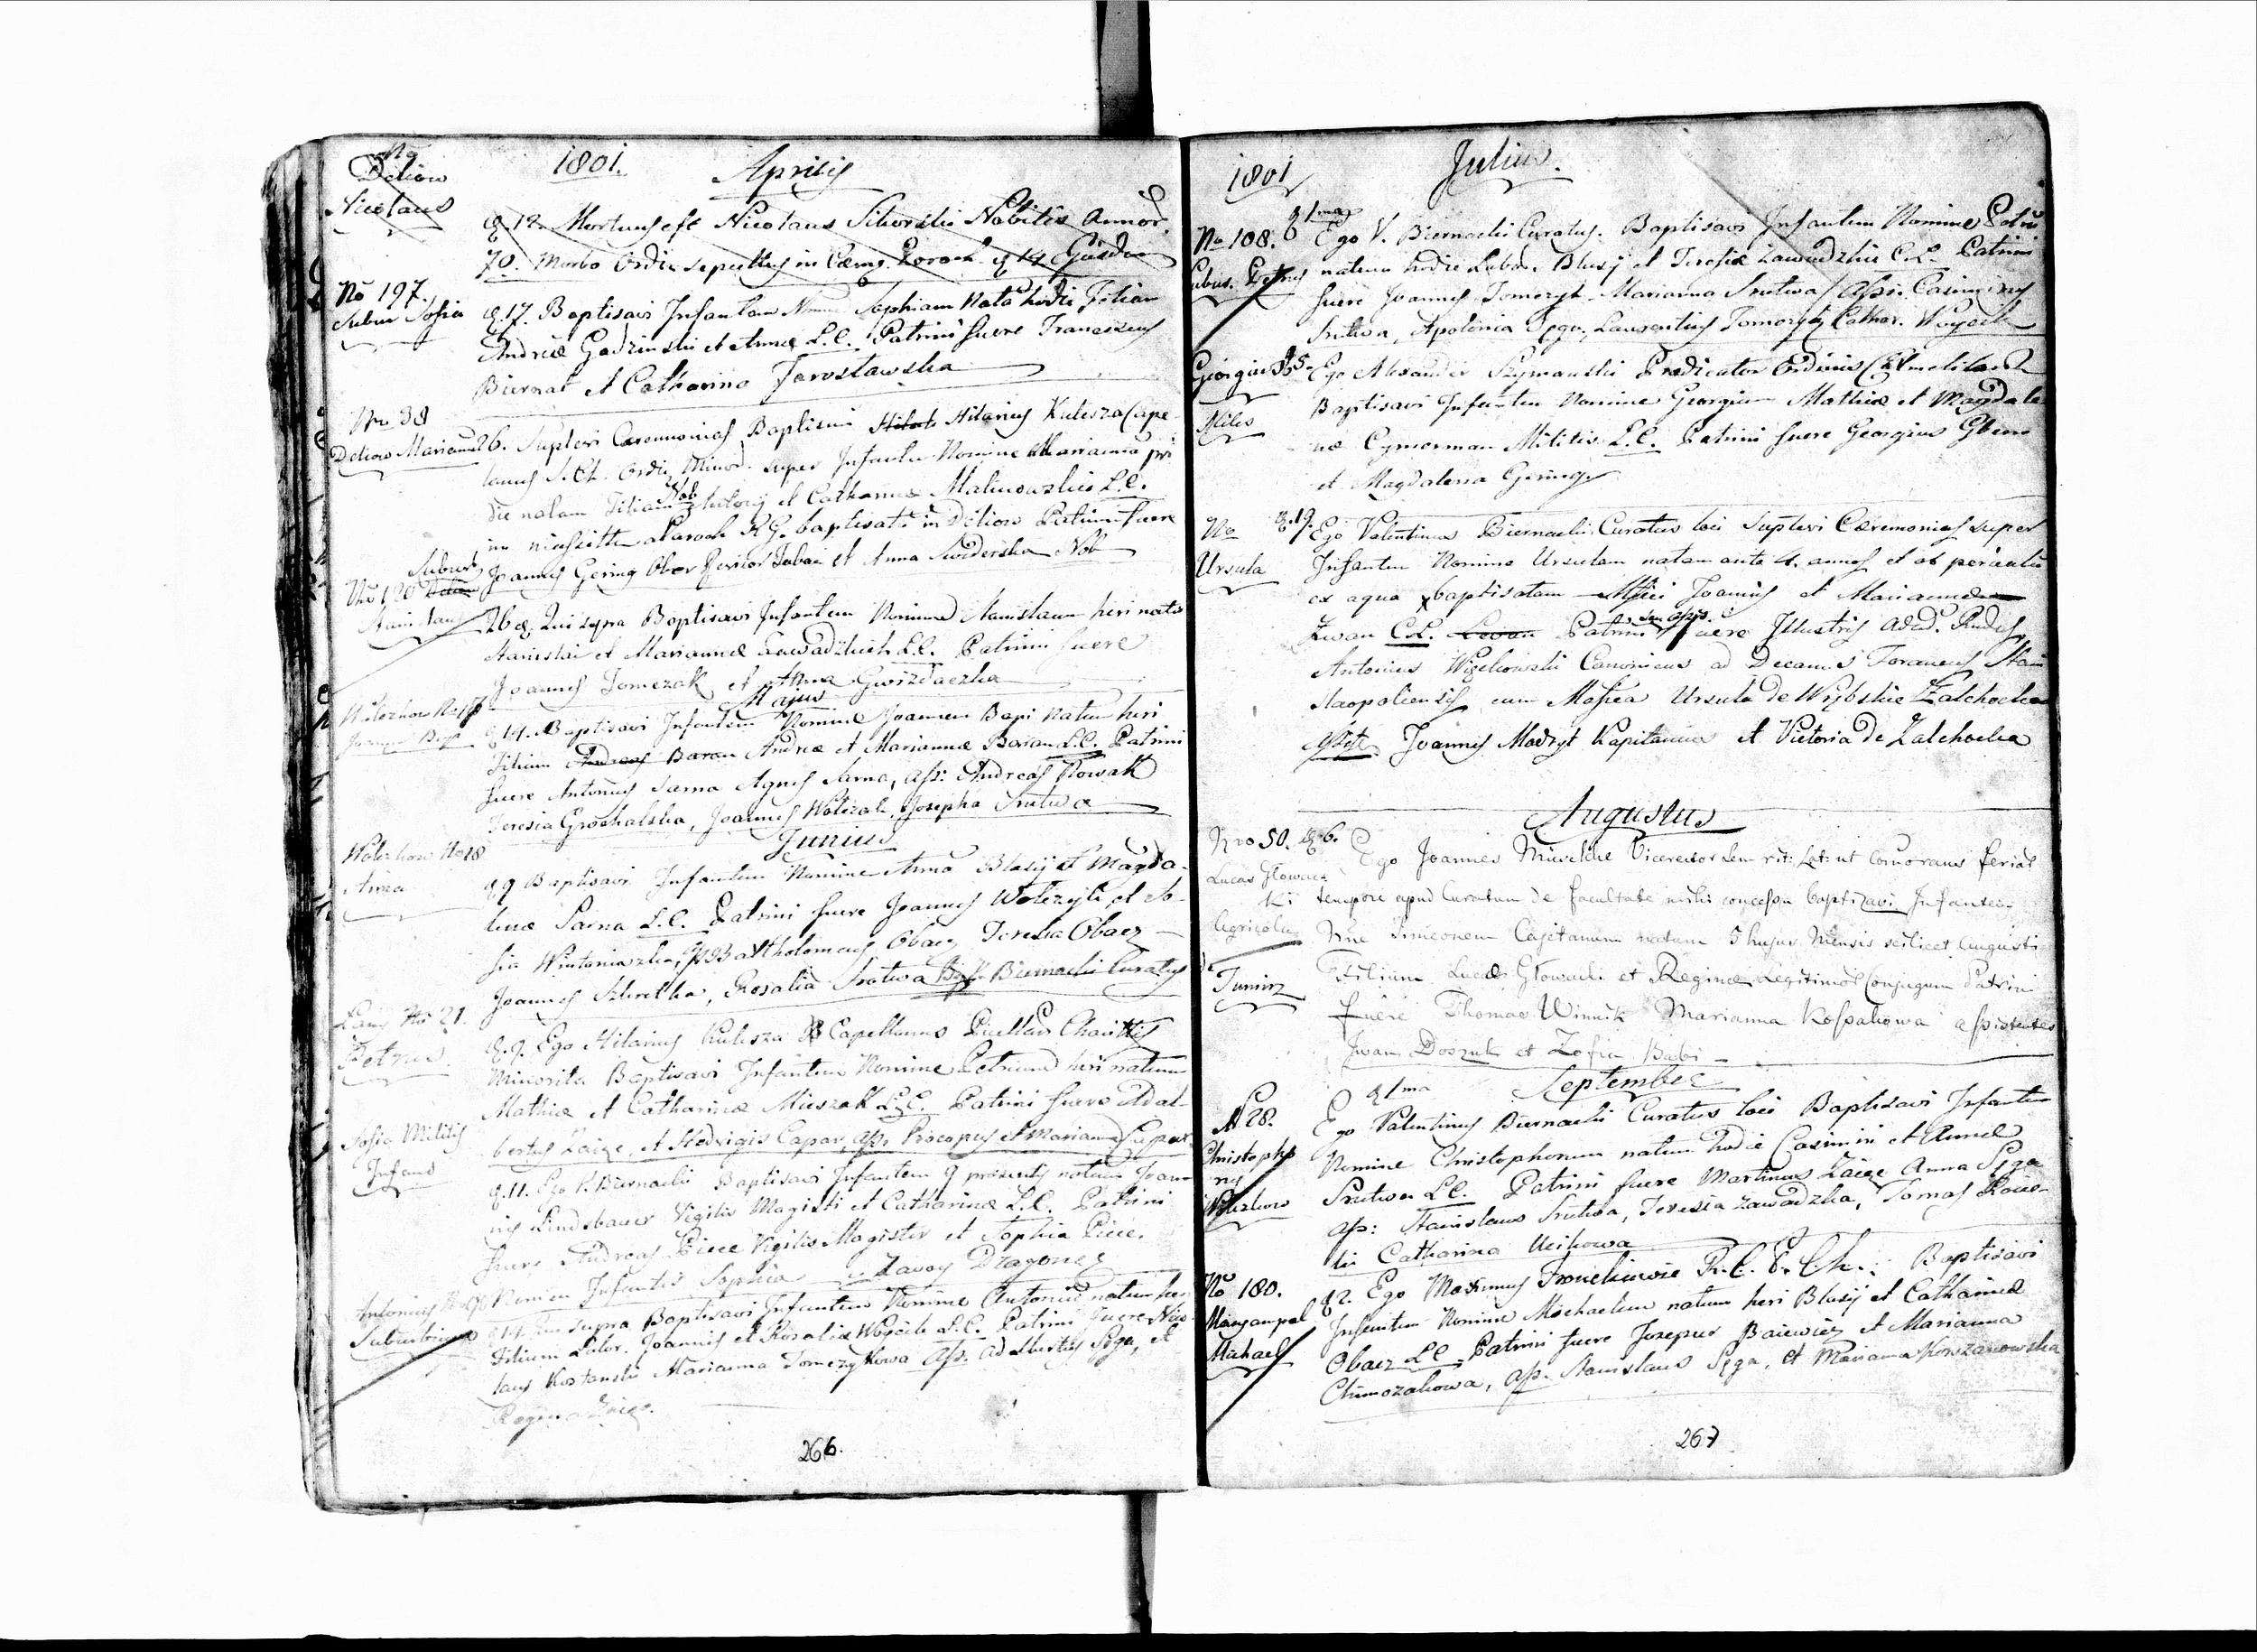 No
Deliow
Nicolaus
1801. Aprilis
q. 12. Mortuus est Nicolaus Sikorski Nobilis annor.
70. Morbo Ordin. sepultus in Caem. Paroch. q 14
No 197
Subur Sofia
q. 17. Baptisavi Infantem Nomine Sophiam Nata hodie Filiam
Andreae Godzinski et Annae L.C. Patrini fuere Franciscus
Biernat et Catharina Jarosławska
Nro 38
Deliow Marianna
26. Suplevi Caeremonias Baptismi Hilarius Kulesza Cape
lanus Ordin. Minor. super Infantem Nomine Marianna pri
die natam Filiam Nob et Catharinae Malinowskie L.C.
Paroch R.G. baptisata in Deliow Patrini fuere
Joannes Gering et Anna Nob
Suburb
No 120
Stanislaus
26 q. Qui supra Baptisavi Infantem Nomine Stanislaum heri nato
Stanislai et Mariannae Zawadzkich L.C. Patrini fuere
Joannes Tomczak et Anna Gwizdaczka
Majus
Wołczkow No 17
q 14. Baptisavi Infantem Nomine Joannem Bapt Natum heri
Filium Andreas Baran Andreae et Mariannae Baran L.C. Patrini
fuere Antonius Sarna Agnes Sarna, Ass: Andreas Nowak
Teresia Grochalska, Joannes Wołczak, Josepha Srutwa
Junius
Wołczkow No 18
Anna
q 9 Baptisavi Infantem Nomine Anna Blasij et Magda-
lenae Sarna L.C. Patrini fuere Joannes Wołczyk et So-
fia Bartholomeus Obacz Teresia Obacz
Joannes Rosalia Srutwa Biernacki Curatus
Łany No 21.
Petrus
q. 9. Ego Hilarius Kulesza Capellanus Puellar Charit
Minorita Baptisavi Infantem Nomine Petrum heri natum
Mathiae et Catharinae Mieszak L.C. Patrini fuere Adal-
bertus Zaige, et Hedvigis Capar, Ass. Procopius et Marianna
Sofia Militis
Infans
q. 11. Ego V. Biernacki Baptisavi Infantem 9 praesentis natam Joan-
nis Lindsbauer Vigilis Magistri et Catharinae L.C. Patrini
fuere Andreas Piece Vigilis Magister et Sophia Piece.
Nomen Infantis Sophia
Antonius
Suburbium
q 14. Qui supra Baptisavi Infantem Nomine Antonium natum heri
Filium Labor. Joannis et Rosaliae Woycik L.C. Patrini fuere Nico-
laus Kostanski Marianna Tomczykowa Ass. Adalbertus Sęga, et
Regina Zaige.
266.
1801 Julius.
No 108.
Subur. Petrus
q 1ma Ego V. Biernacki Curatus. Baptisavi Infantem Nomine Petru
natum hodie Labor. Blasij et Teresiae Zawadzkie C.L. Patrini
fuere Joannes Tomczyk Marianna Srutwa / Ass. Casimirus
Srutwa, Apolonia Sęga, Laurentius Tomczyk Cathar. Woycik
Georgius
Miles
15. Ego Alexander Szymanski Predicator Ordinis Carmelitar
Baptisavi Infantem Nomine Georgium Mathiae et Magdale
nae Cymerman Militis L.C. Patrini fuere Georgius
et Magdalena Gering
No
Ursula
q. 19. Ego Valentinus Biernacki Curatus loci Suplevi Caeremonias super
Infantem Nomine Ursulam natam ante 4. annos et ob periculu
ex aqua baptisatam Joannis et Mariannae
Zwan C.L. Patrini fuere Illustris
Antonius Canonicus ad Decanus Foraneus Stani
slaopoliensis cum Ursula de Wybskie Zalchocka
Joannes Madzyt Kapitanus et Victoria de Zalchocka
Augustus
Nro 50.
Lucas Głowac
ki
Agricola
de
Tumirz
q. 6. Ego Joannes Vicerector Sem. rit: Lat: ut comorans feriar
tempore apud Curatum de facultate mihi concessa baptizavi Infantem
Nne Simeonem Cajetanum natum 5 hujus Mensis scilicet Augusti
Filium Lucae Głowacki et Reginae Legitimor Conjugum Patrini
fuere Thomas Winnik Marianna Kossakowa assistentes
Iwan Doszuk et Zofia Babi
September
N 28.
Christopho
rus
Wołczkow
q 1ma
Ego Valentinus Biernacki Curatus loci Baptisavi Infantem
Nomine Christophorum natum hodie Casimiri et Annae
Srutwa L.C. Patrini fuere Martinus Zaige Anna Sęga
Ass: Stanislaus Srutwa, Teresia Zawadzka, Tomas
ki Catharina
No 180.
Maryampol
Michael
q 2. Ego Maximus R.C. Baptisavi
Infantem Nomine Michaelem natum heri Blasij et Catharinae
Obacz L.C. Patrini fuere Josephus Baiewicz et Marianna
Chimczakowa, Ass. Stanislaus Sęga, et Marianna Korszanowska
267